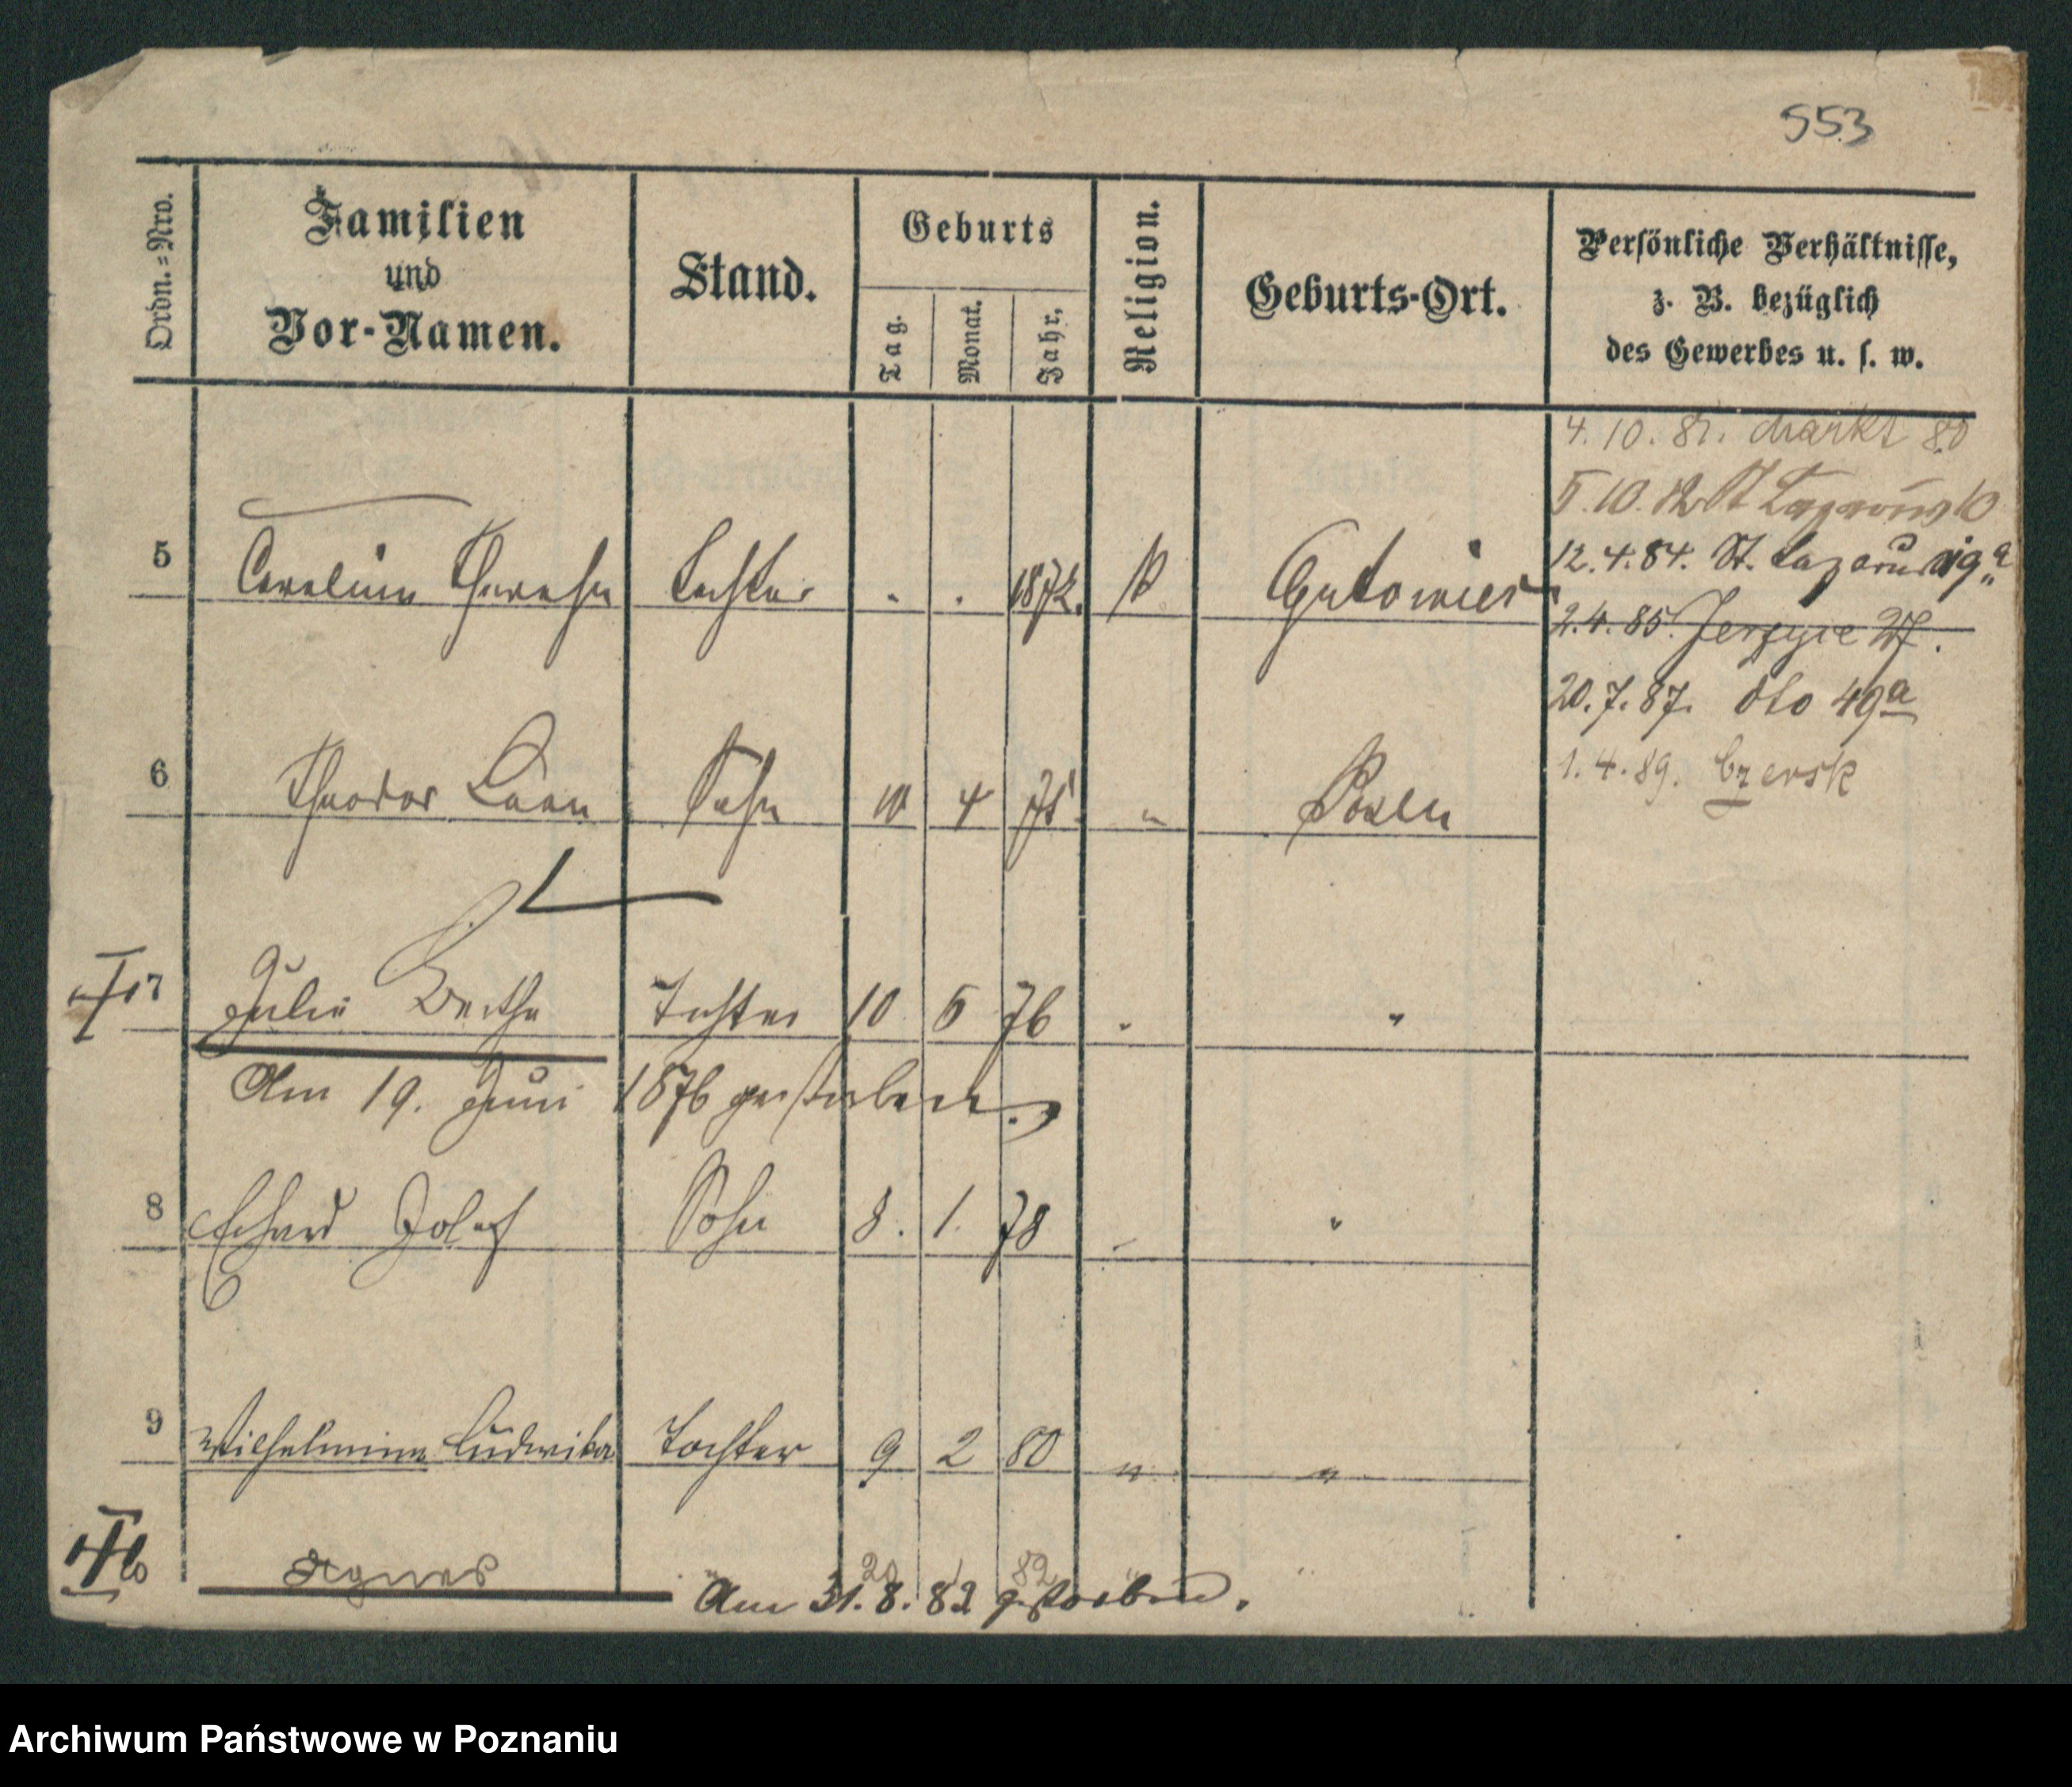 553
Ordn.-Nro.
Familien
und
Vor-Namen.
Stand.
Geburts
Tag.
Monat.
Jahr.
Religion.
Geburts-Ort.
Persönliche Verhältnisse,
z. B. bezüglich
des Gewerbes u. s. w.
4. 10. 81. Markt 80
5. 10. 82 St Lazarus 10
12. 4. 84. St. Lazarus 19a
2. 4. 85. Jerzyce 27.
20. 7. 87. dto 49a
1. 4. 89. Czersk
5 Caroline Therese Tochter . . 1872. K
6 Theodor Sohn 10 4 75 " Posen
7 Julie Bertha Tochter 10 5 76 " "
Am 19. Juni 1876 gestorben.
8 Sohn 8. 1. 78 " "
9 Wilhelmine Ludwika Tochter 9 2 80 " "
10 Agnes 20 1 82 " "
Am 31. 8. 82 gestorben.
Archiwum Państwowe w Poznaniu